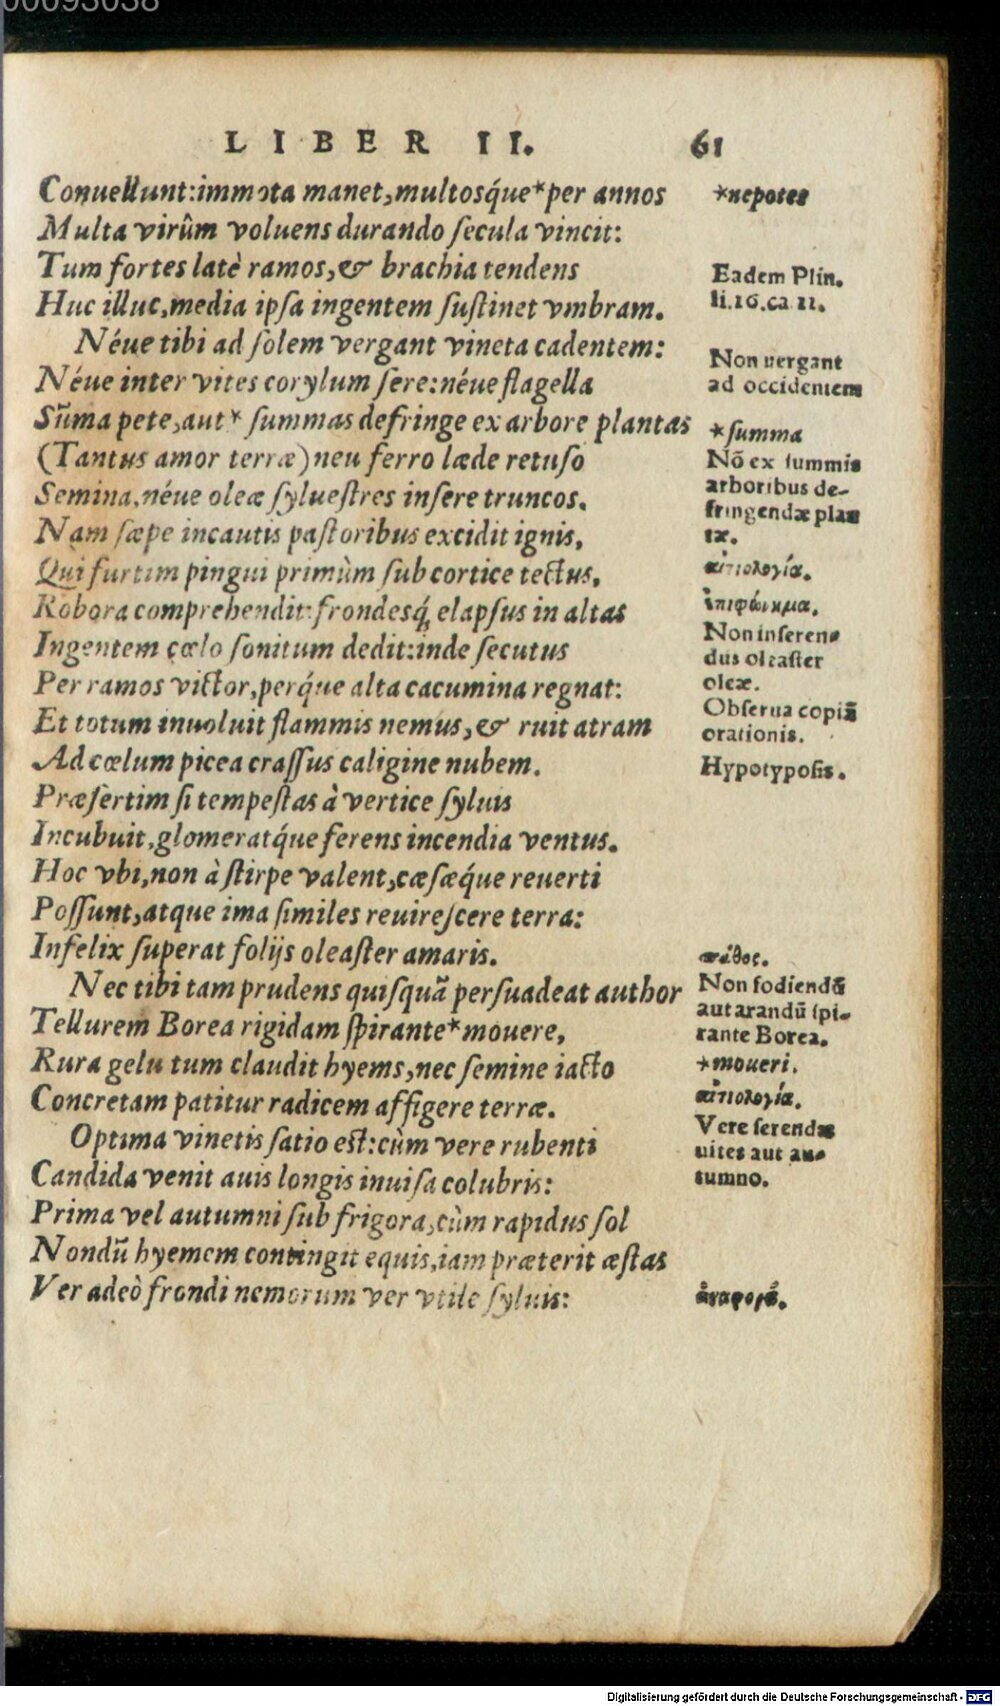 00093038
LIBER II. 61
Conuellunt:immota manet,multosq́ue*per annos
Multa virûm voluens durando ſecula vincit:
Tum fortes latè ramos,& brachia tendens
Huc illuc,media ipſa ingentem ſuſtinet vmbram.
Néue tibi ad ſolem vergant vineta cadentem:
Néue inter vites corylum ſere:néue flagella
Sūma pete,aut* ſummas defringe ex arbore plantas
(Tantus amor terræ)neu ferro læde retuſo
Semina,néue oleæ ſylueſtres inſere truncos.
Nam ſæpe incautis paſtoribus excidit ignis,
Qui furtim pingui primùm ſub cortice tectus,
Robora comprehendit:frondesq́, elapſus in altas
Ingentem cœlo ſonitum dedit:inde ſecutus
Per ramos victor,perq́ue alta cacumina regnat:
Et totum inuoluit flammis nemus,& ruit atram
Ad cœlum picea craſſus caligine nubem.
Præſertim ſi tempeſtas à vertice ſyluis
Incubuit,glomeratq́ue ferens incendia ventus.
Hoc vbi,non à ſtirpe valent,cæſæq́ue reuerti
Poſſunt,atque ima ſimiles reuireſcere terra:
Infelix ſuperat folijs oleaſter amaris.
Nec tibi tam prudens quiſquā perſuadeat author
Tellurem Borea rigidam ſpirante*mouere,
Rura gelu tum claudit hyems,nec ſemine iacto
Concretam patitur radicem affigere terræ.
Optima vinetis ſatio eſt:cùm vere rubenti
Candida venit auis longis inuiſa colubris:
Prima vel autumni ſub frigora,cùm rapidus ſol
Nondū hyemem contingit equis,iam præterit æſtas
Ver adeò frondi nemorum ver vtile ſyluis:
*nepotes
Eadem Plin.
li.16.ca 11.
Non uergant
ad occidentem
*ſumma
Nō ex ſummis
arboribus de-
fringendæ plan
tæ.
αἰτιολογία.
ἐπιφώνημα.
Non inſeren-
dus oleaſter
oleæ.
Obſerua copiā
orationis.
Hypotypoſis.
πάθος.
Non fodiendū
aut arandū ſpi-
rante Borea.
*moueri.
αἰτιολογία.
Vere ſerendæ
uites aut au-
tumno.
ἀναφορά.
Digitalisierung gefördert durch die Deutsche Forschungsgemeinschaft - DFG